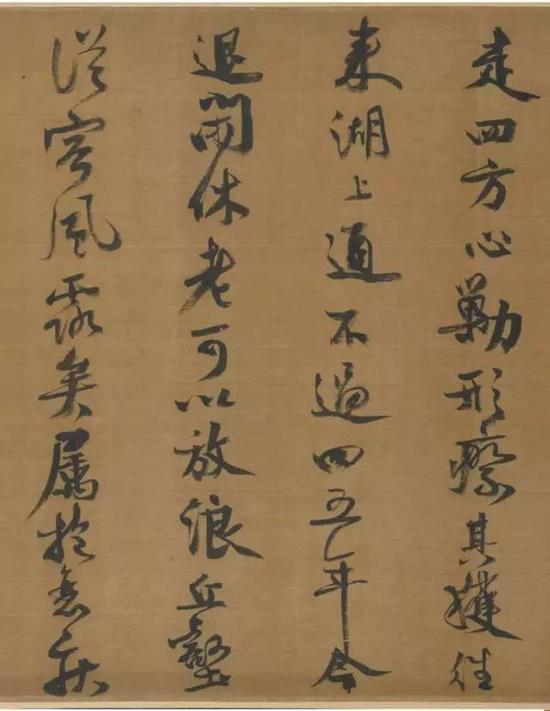 走四方心勦形瘵其獲往
來湖上通不過四五年今
退閒休老可以放浪丘壑
從容風露矣屬抱衰疾